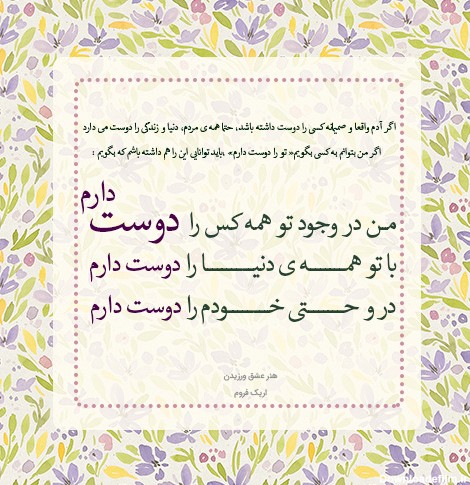 اگر آدم واقعا و صمیمانه کسی را دوست داشته باشد، حتما همه ی مردم، دنیا و زندگی را دوست می دارد
اگر من بتوانم به کسی بگویم« تو را دوست دارم» ،باید توانایی این را هم داشته باشم که بگویم :
من در وجود تو همه کس را دوست دارم
با تو همه ی دنیا را دوست دارم
در و حتی خودم را دوست دارم
هنر عشق ورزیدن
اریک فروم